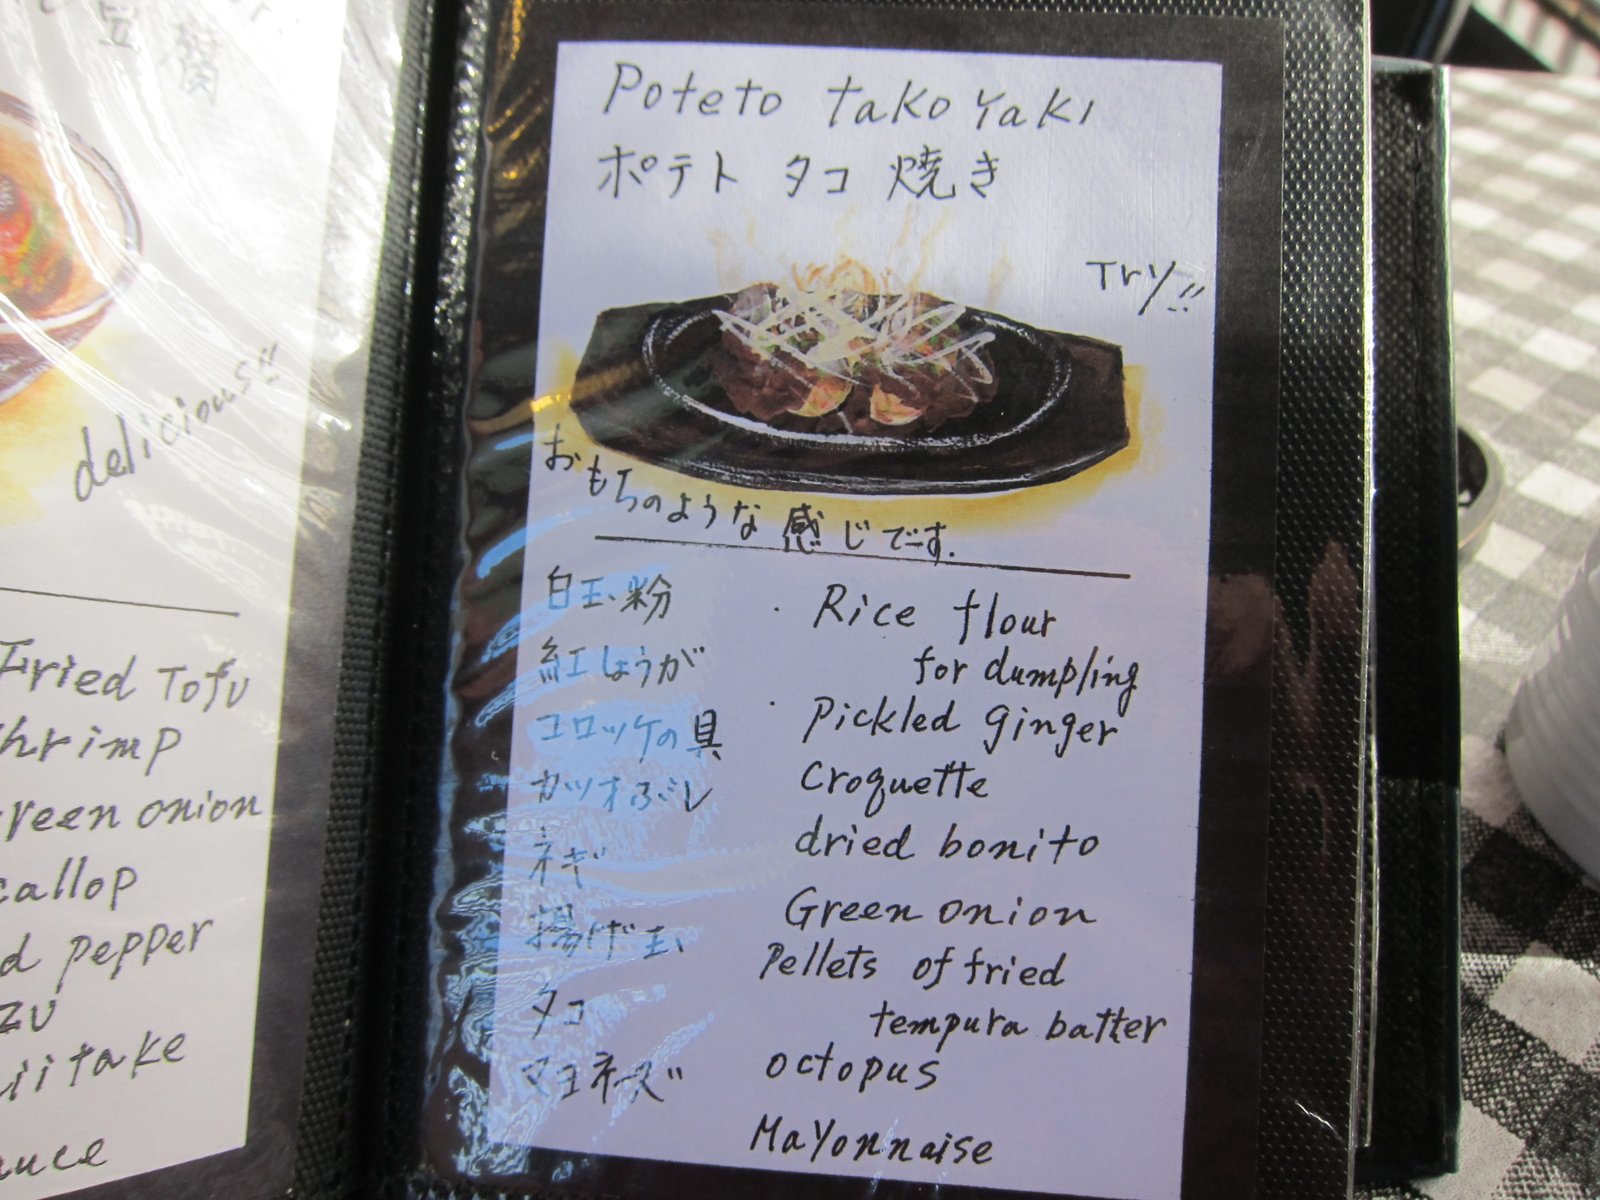 豆腐
delicious!!
Fried Tofu
hrimp
reen onion
callop
d pepper
zu
iitake
auce
Poteto takoyaki
ポテト タコ 焼き
Try!!
おもちのような感じです.
白玉粉 Rice flour
for dumpling
紅しょうが Pickled ginger
コロッケの具 croquette
カツオぶし dried bonito
ネギ Green onion
揚げ玉 Pellets of fried
tempura batter
タコ octopus
マヨネーズ Mayonnaise